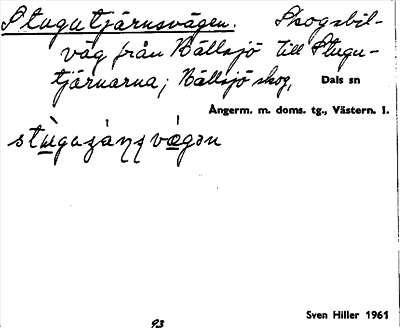 Stugutjärnsvägen. Skogsbil-
väg från Källsjö till Stugu-
tjärnarna; Källsjö skog,
Dals sn
Ångerm. m. doms. tg., Västern. l.
Sven Hiller 1961
93